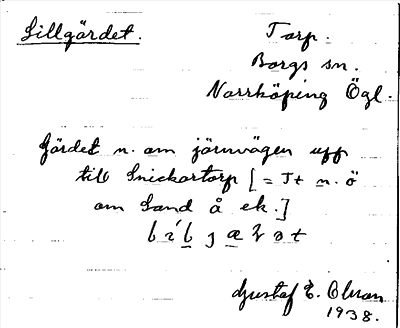 Lillgärdet.
Torp.
Borgs sn.
Norrköping Ögl.
Gärdet n. om järnvägen upp
till Snickartorp [= Jt n. ö
om Sand å ek.]
Gustaf E. Olson
1938.